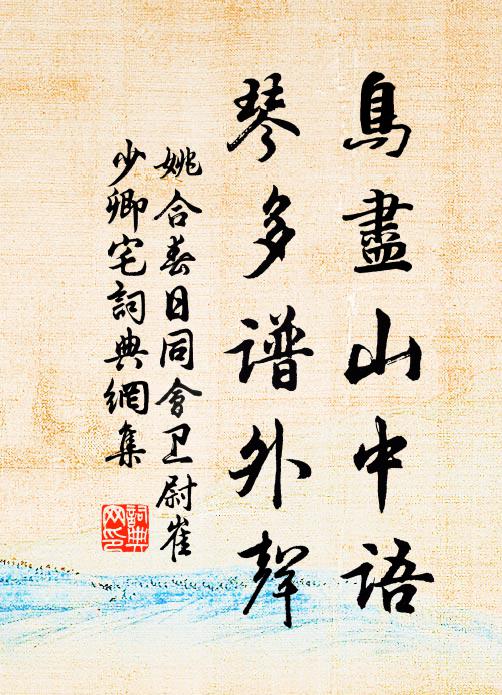 鳥盡山中語
琴多谱外聲
姚合春日同會卫尉崔
少卿宅詞典網集
詞典
网印